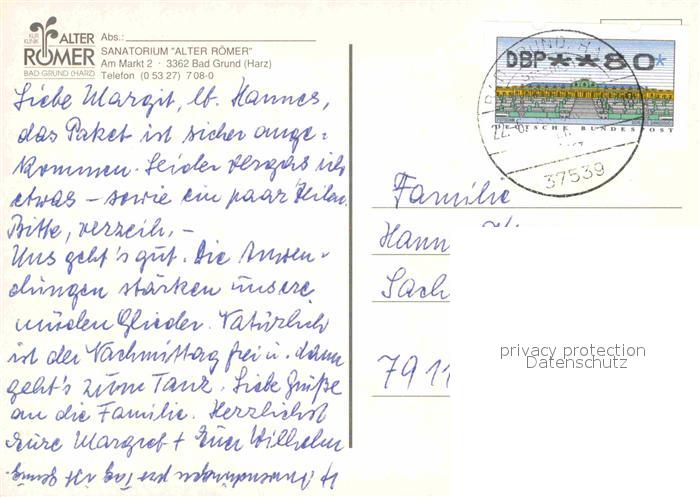 KUR
KLINIK
ALTER
RÖMER
BAD GRUND (HARZ)
Abs.:
SANATORIUM "ALTER RÖMER"
Am Markt 2 · 3362 Bad Grund (Harz)
Telefon (0 53 27) 7 08-0
Liebe Margit, lb. Hannes,
das Paket ist sicher ange=
kommen. Leider vergas ich
etwas – sowie ein paar Zeilen.
Bitte, verzeih. –
Uns geht's gut. Die Anwen-
dungen stärken unsere
müden Glieder. Natürlich
ist der Nachmittag frei u. dann
geht's zum Tanz. Liebe Grüße
an die Familie. Herzlichst
Eure Margret + Euer Wilhelm
4 Anwendungen pro Tag ist
DBP**80*
DEUTSCHE BUNDESPOST
37539
Familie
Hann
Sach
7911
privacy protection
Datenschutz